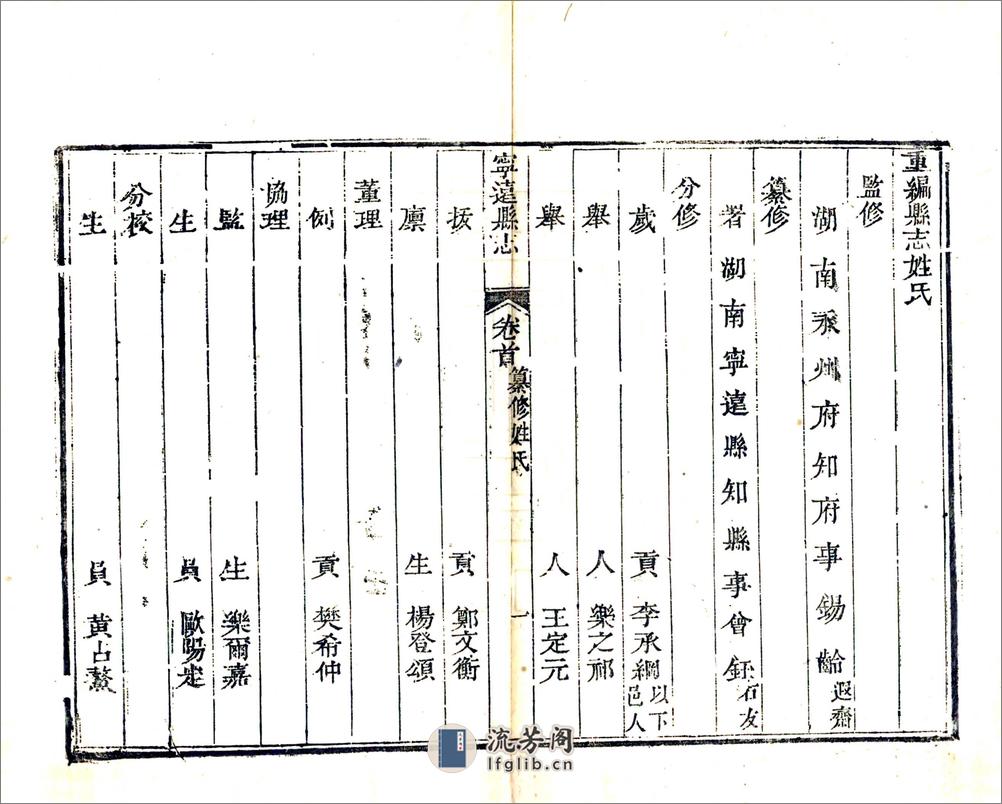 重編縣志姓氏
監修
湖南永州府知府事錫齡遐齋
纂修
署湖南寧遠縣知縣事曾鈺石友
分修
歲貢李承綱以下邑人
舉人樂之祁
舉人王定元
寧遠縣志 卷首 纂修姓氏 一
拔貢鄭文衡
廩生楊登頌
董理
例貢樊希仲
協理
監生樂爾嘉
生員歐陽
分校
生員黃占鰲
流芳阁
lfglib.cn